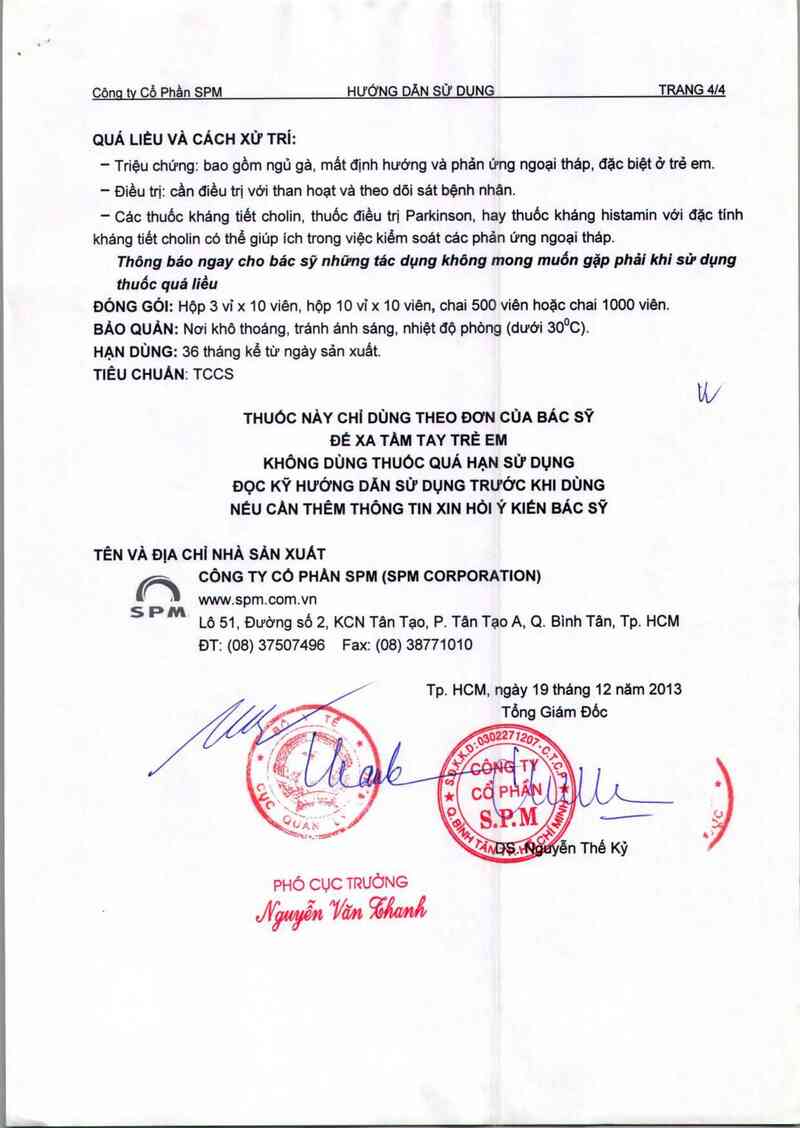 Công ty Cổ Phần SPM HƯỚNG DẪN SỬ DỤNG TRANG 4/4
QUÁ LIỀU VÀ CÁCH XỬ TRÍ:
– Triệu chứng: bao gồm ngủ gà, mất định hướng và phản ứng ngoại tháp, đặc biệt ở trẻ em.
– Điều trị: cần điều trị với than hoạt và theo dõi sát bệnh nhân.
– Các thuốc kháng tiết cholin, thuốc điều trị Parkinson, hay thuốc kháng histamin với đặc tính
kháng tiết cholin có thể giúp ích trong việc kiểm soát các phản ứng ngoại tháp.
Thông báo ngay cho bác sỹ những tác dụng không mong muốn gặp phải khi sử dụng
thuốc quá liều
ĐÓNG GÓI: Hộp 3 vỉ x 10 viên, hộp 10 vỉ x 10 viên, chai 500 viên hoặc chai 1000 viên.
BẢO QUẢN: Nơi khô thoáng, tránh ánh sáng, nhiệt độ phòng (dưới 30⁰C).
HẠN DÙNG: 36 tháng kể từ ngày sản xuất.
TIÊU CHUẨN: TCCS
THUỐC NÀY CHỈ DÙNG THEO ĐƠN CỦA BÁC SỸ
ĐỂ XA TẦM TAY TRẺ EM
KHÔNG DÙNG THUỐC QUÁ HẠN SỬ DỤNG
ĐỌC KỸ HƯỚNG DẪN SỬ DỤNG TRƯỚC KHI DÙNG
NẾU CẦN THÊM THÔNG TIN XIN HỎI Ý KIẾN BÁC SỸ
TÊN VÀ ĐỊA CHỈ NHÀ SẢN XUẤT
CÔNG TY CỔ PHẦN SPM (SPM CORPORATION)
SPM
www.spm.com.vn
Lô 51, Đường số 2, KCN Tân Tạo, P. Tân Tạo A, Q. Bình Tân, Tp. HCM
ĐT: (08) 37507496 Fax: (08) 38771010
Tp. HCM, ngày 19 tháng 12 năm 2013
Tổng Giám Đốc
BỘ Y TẾ
CỤC QUẢN
S.Đ.K.K.D:0302271207-C.T.C.P
CÔNG TY
CỔ PHẦN
S.P.M
Q.BÌNH TÂN-T.P.HỒ CHÍ MINH
DS. Nguyễn Thế Kỷ
PHÓ CỤC TRƯỞNG
Nguyễn Văn Thanh